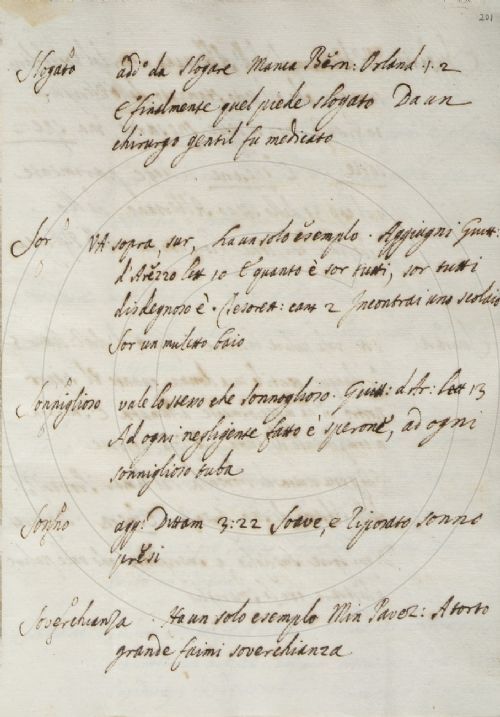 201
Slogato add:° da slogare Manca Bern: Orland 1. 2
E finalmente quel piede slogato Da un
chirurgo gentil fu medicato
Sor VA sopra, sur, ha un solo esempio. Aggiugni Guitt:
d'Arezzo lett 10 E quanto è sor tutti, sor tutti
disdegnoso è. Tesorett: cant 2 Incontrai uno scolaio
Sor un muletto baio
Sonniglioso vale lo stesso che sonnoglioso. Guitt: d'Ar: lett 13
Ad ogni negligente fatto è sperone, ad ogni
sonniglioso tuba
Sonno agg: Dittam 3:22 Soave, e riposato sonno
presi
Soverchianza Ha un solo esempio Min Pavez: A torto
grande faimi soverchianza